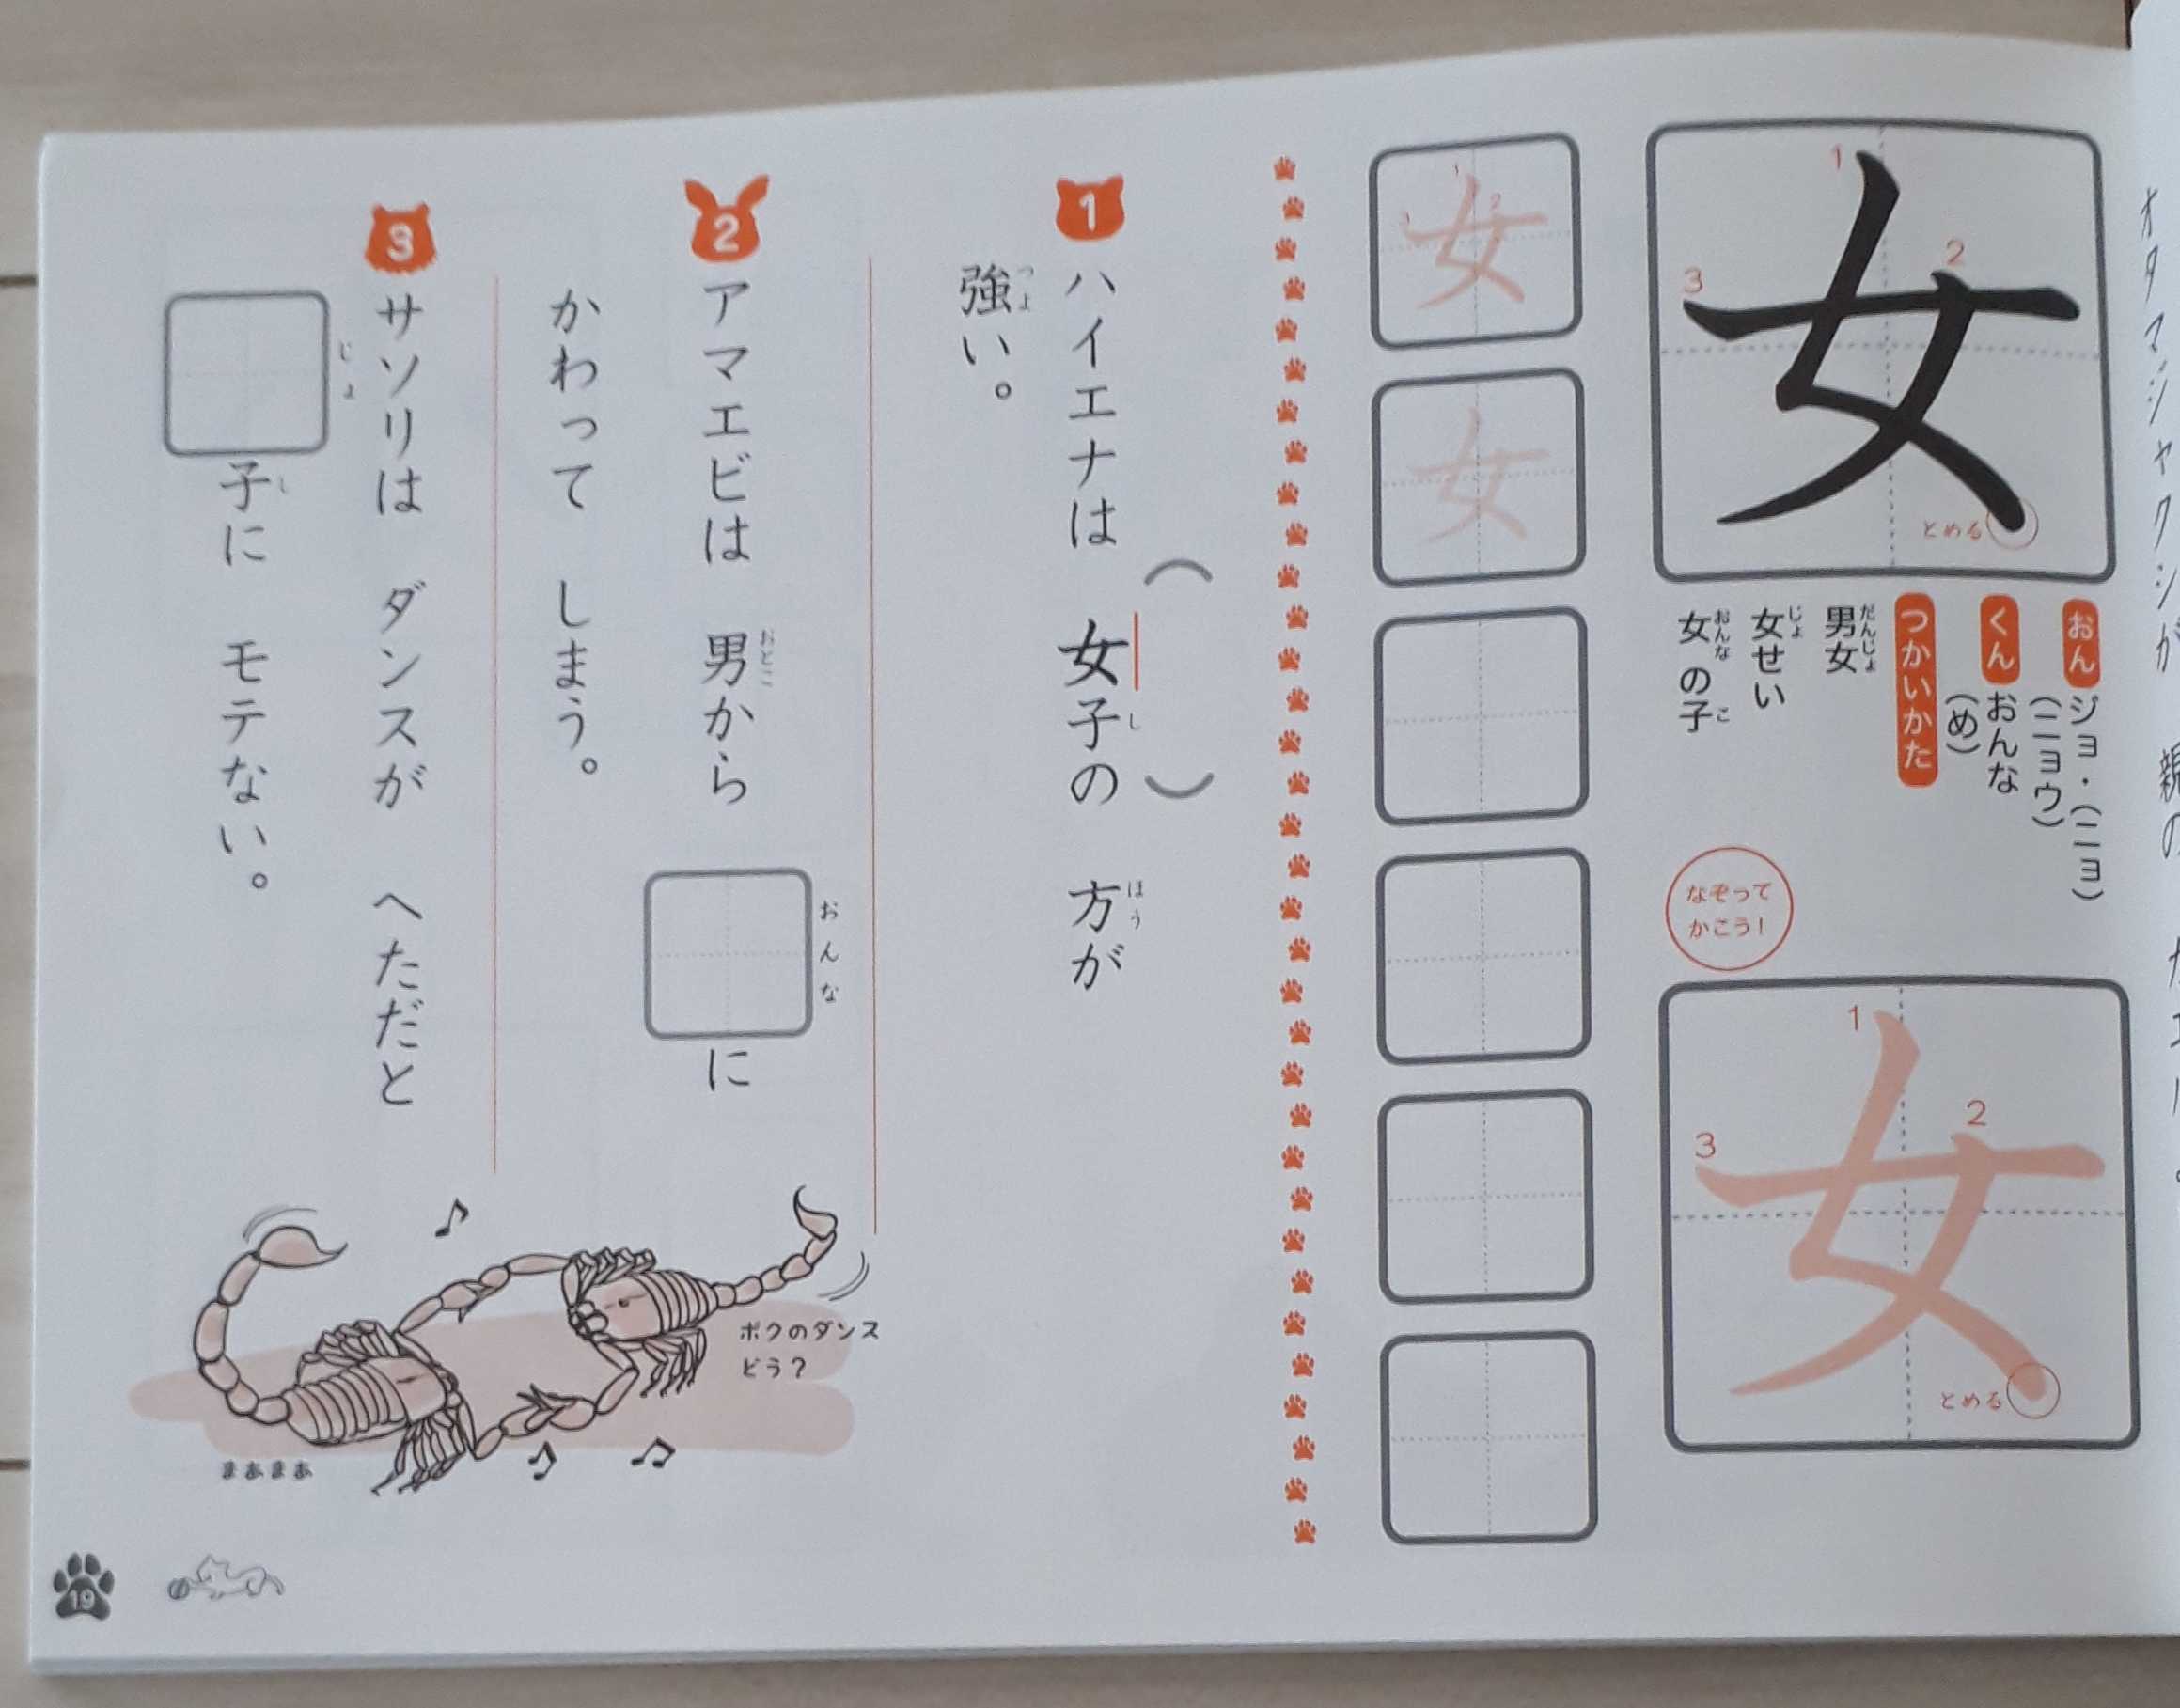 オタマジャクシが 親の
女
1
2
3
とめる
おん ジョ・(ニョ)
(ニョウ)
くん おんな
(め)
つかいかた
男女
だんじょ
女せい
じょ
女の子
おんな こ
なぞって
かこう!
女
1
2
3
とめる
女
1
2
3
女
1 ハイエナは 女子の 方が
( )
し
ほう
強い。
つよ
2 アマエビは 男から に
おとこ
おんな
かわって しまう。
3 サソリは ダンスが へただと
じょ
子に モテない。
し
ボクのダンス
どう?
まあまあ
19